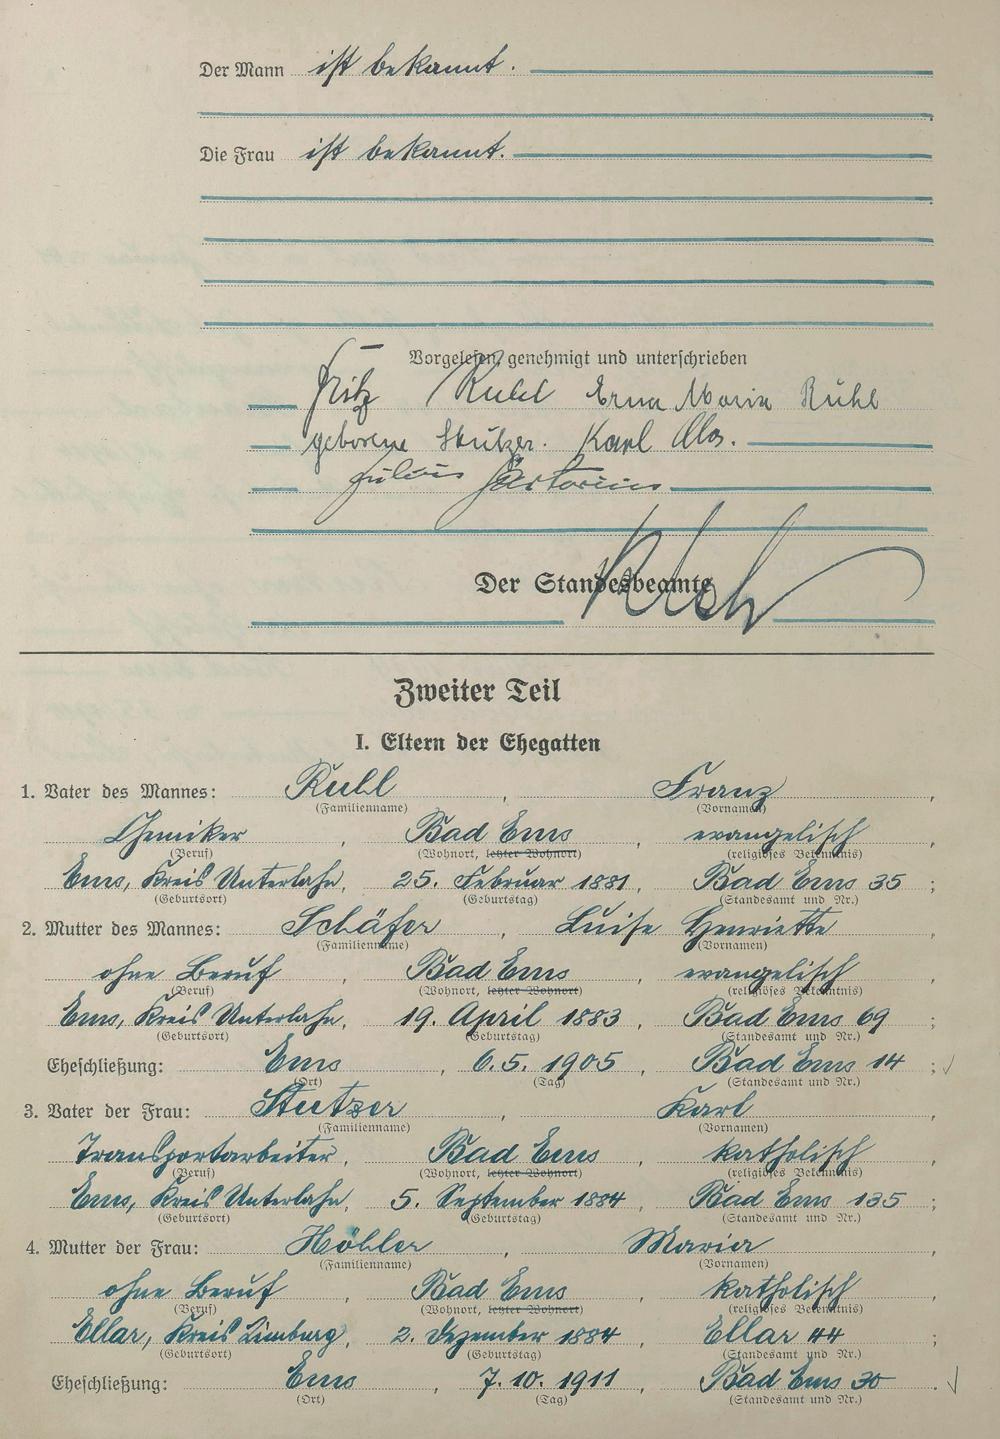 Der Mann ist bekannt.
Die Frau ist bekannt.
Vorgelesen, genehmigt und unterschrieben
Fritz Ruhl Erna Maria Ruhl
geborene Stutzer. Karl
Julius Sartorius
Der Standesbeamte
Zweiter Teil
I. Eltern der Ehegatten
1. Vater des Mannes: Ruhl, Franz,
(Familienname) (Vornamen)
Chemiker, Bad Ems evangelisch
(Beruf) (Wohnort, letzter Wohnort) (religiöses Bekenntnis)
Ems, Kreis Unterlahn, 25. Februar 1881, Bad Ems 35;
(Geburtsort) (Geburtstag) (Standesamt und Nr.)
2. Mutter des Mannes: Schäfer, Luise Henriette,
(Familienname) (Vornamen)
ohne Beruf, Bad Ems, evangelisch
(Beruf) (Wohnort, letzter Wohnort) (religiöses Bekenntnis)
Ems, Kreis Unterlahn, 19. April 1883, Bad Ems 69;
(Geburtsort) (Geburtstag) (Standesamt und Nr.)
Eheschließung: Ems, 6.5. 1905, Bad Ems 14;
(Ort) (Tag) (Standesamt und Nr.)
3. Vater der Frau: Stutzer, Karl,
(Familienname) (Vornamen)
Transportarbeiter, Bad Ems, katholisch
(Beruf) (Wohnort, letzter Wohnort) (religiöses Bekenntnis)
Ems, Kreis Unterlahn, 5. September 1884, Bad Ems 135;
(Geburtsort) (Geburtstag) (Standesamt und Nr.)
4. Mutter der Frau: Höhler, Maria,
(Familienname) (Vornamen)
ohne Beruf, Bad Ems, katholisch
(Beruf) (Wohnort, letzter Wohnort) (religiöses Bekenntnis)
Ellar, Kreis Limburg, 2. Dezember 1884, Ellar 44;
(Geburtsort) (Geburtstag) (Standesamt und Nr.)
Eheschließung: Ems, 7.10. 1911, Bad Ems 30.
(Ort) (Tag) (Standesamt und Nr.)